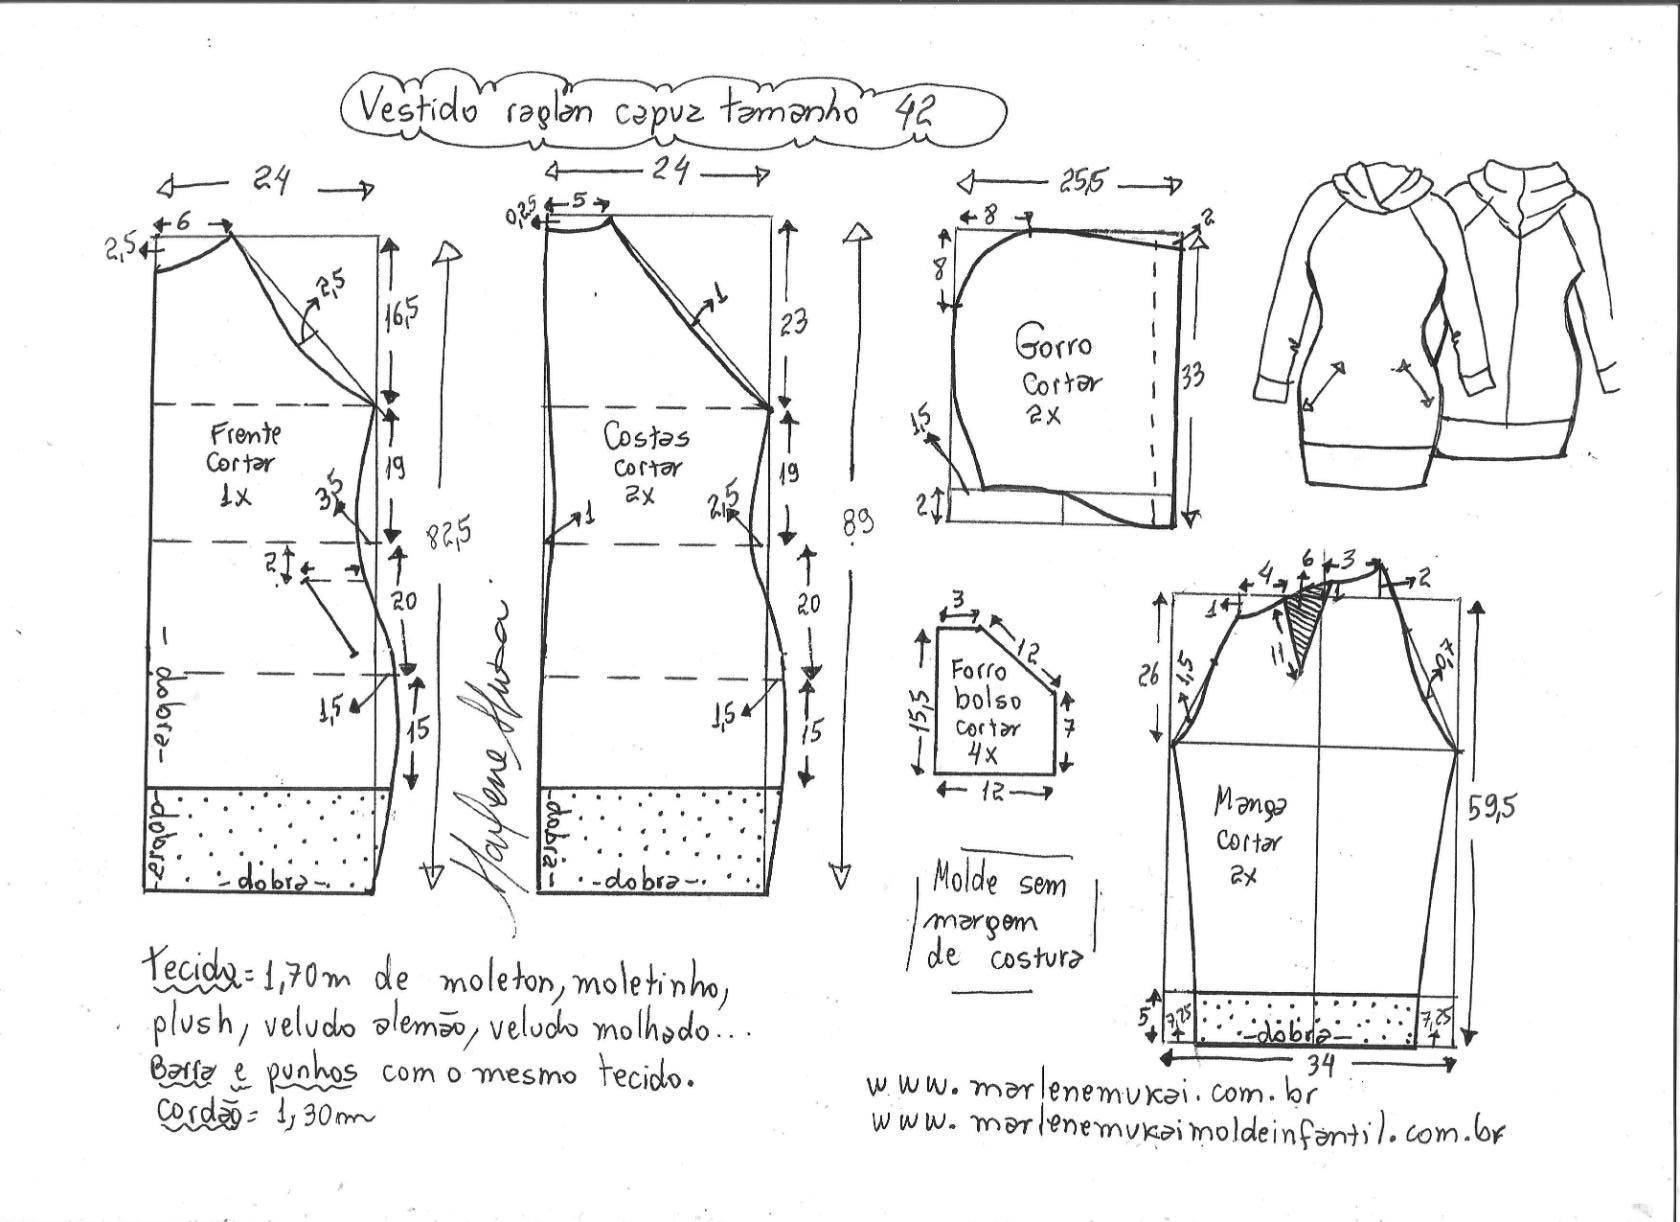 Vestido raglan capuz tamanho 42
24
6
2,5
2,5
16,5
Frente
cortar
1x
19
3,5
2
20
1,5
15
82,5
- dobra -
- dobra -
- dobra -
24
5
0,25
1
23
Costas
cortar
2x
19
1
2,5
20
1,5
15
89
- dobra -
- dobra -
25,5
8
2
8
Gorro
cortar
2x
33
1,5
2
3
12
Forro
bolso
cortar
4x
15,5
7
12
6
4
3
1
1
2
11
26
1,5
0,7
Manga
cortar
2x
59,5
5
7,25
7,25
- dobra -
34
Molde sem
margem
de costura
Tecido = 1,70m de moleton, moletinho,
plush, veludo alemão, veludo molhado...
Barra e punhos com o mesmo tecido.
Cordão = 1,30m
www.marlenemukai.com.br
www.marlenemukaimoldeinfantil.com.br